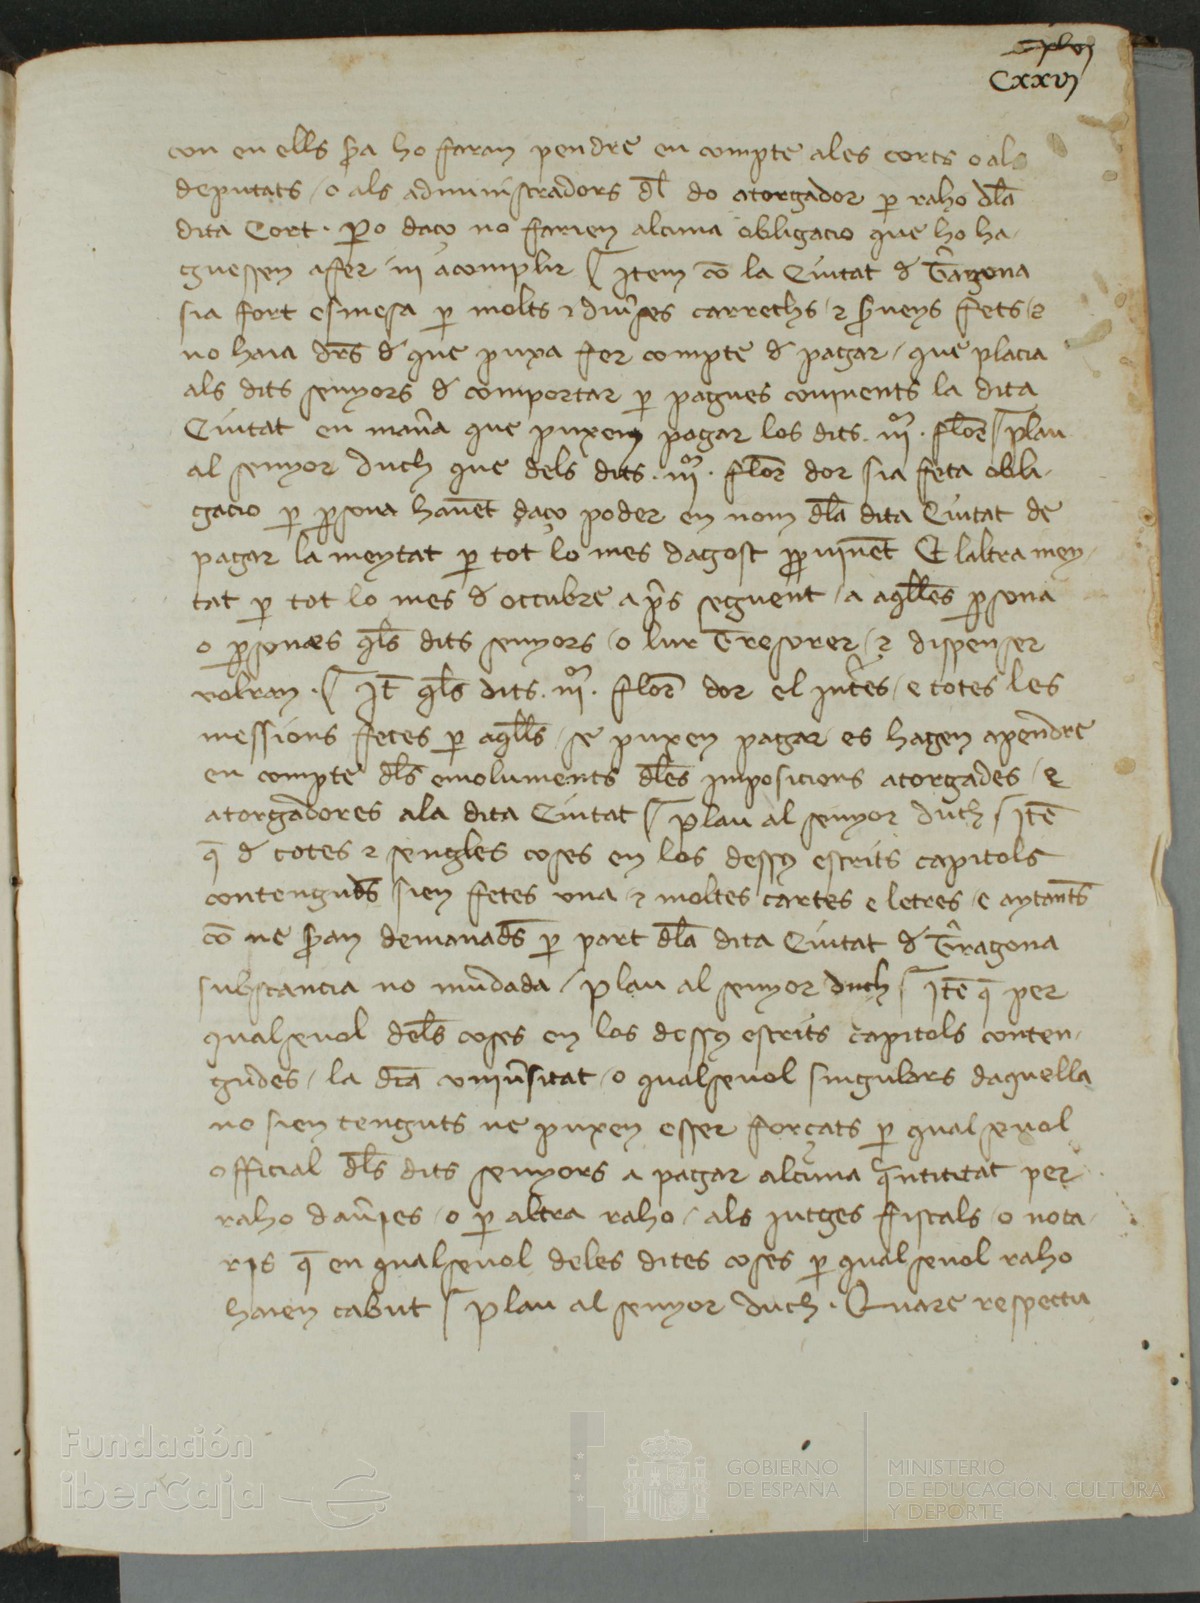 Cxxvj
con en ells ẜa ho faran pendre en compte ales corts o als
deputats / o als administradors dl̄ do atorgador ꝑ raho dl̄a
dita Cort · ꝑo daço no farien alcuna obligacio que ho ha-
guessen afer ni acomplir Item cō la Ciutat đ T̄ragona
sia fort esmesa ꝑ molts ⁊ diu̅ses carrechs / ⁊ ẜueys fets / ⁊
no haia drs̄ đ que puxa fer compte đ pagar / que placia
als dits senyors đ comportar ꝑ pagues couinents la dita
Ciutat en man̄a que puxen pagar los dits · iijᵐ · flor̄ plau
al senyor duch que dels dits · iijᵐ · flor̄ dor sia feta obli-
gacio ꝑ ꝑsona hauēt daço poder en nom dl̄a dita Ciutat de
pagar la meytat ꝑ tot lo mes dagost ꝓuinēt E laltra mey-
tat ꝑ tot lo mes đ occubre apr̄s seguent / a aqll̄es ꝑsona
o ꝑsones ql̄s dits senyors / o lur T̄resorer / ⁊ dispenser
volran · It̄ ql̄s dits · iijᵐ · flor̄ dor el int̄es / e totes les
messions fetes ꝑ aqll̄s / se puxen pagar es hagen apendre
en compte dl̄s emoluments dl̄es imposicions atorgades / e
atorgadores ala dita Ciutat plau al senyor duch Itē
q̄ đ totes ⁊ sengles coses en los dessꝰ escrits capitols
contengud̄s sien fetes vna / ⁊ moltes cartes e letres / e aytant̄s
cō ne ẜan demanad̄s ꝑ part dl̄a dita Ciutat đ T̄ragona
substancia no mudada / plau al senyor duch Itē q̄ per
qualseuol del̄s coses en los dessꝰ escrits capitols conten-
gudes / la dīa vniu̅sitat / o qualseuol singulars daquella
no sien tenguts ne puxen esser forçats ꝑ qualseuol
official dl̄s dits senyors a pagar alcuna q̄ntititat per
raho dau̅ies / o ꝑ altra raho / als jutges fiscals / o nota-
ris q̄ en qualseuol deles dites coses ꝑ qualseuol raho
haien cabut plau al senyor duch · Quare respectu
Fundación
iberCaja
GOBIERNO
DE ESPAÑA
MINISTERIO
DE EDUCACIÓN, CULTURA
Y DEPORTE